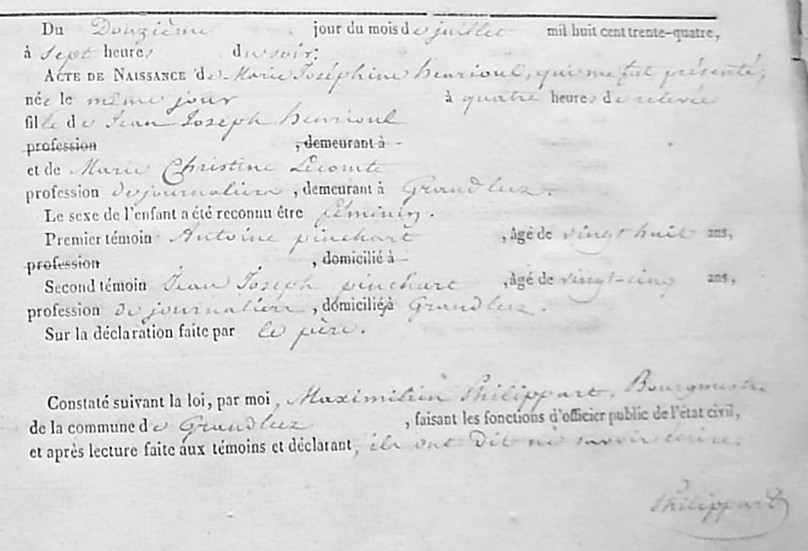 Du Douzième jour du mois de juillet mil huit cent trente-quatre,
à sept heures du soir;
ACTE DE NAISSANCE de Marie Joséphine henrioul, qui me fut présenté,
née le même jour à quatre heures de relevée
fille de Jean Joseph henrioul
profession , demeurant à -
et de Marie Christine Lecomte
profession de journalière , demeurant à Grandleez.
Le sexe de l'enfant a été reconnu être féminin.
Premier témoin Antoine pinchart , âgé de vingt huit ans,
profession , domicilié à -
Second témoin Jean Joseph pinchart , âgé de vingt-cinq ans,
profession de journalier , domicilié à Grandleez.
Sur la déclaration faite par le père.
Constaté suivant la loi, par moi, Maximilien Philippart, Bourgmestre
de la commune de Grandleez , faisant les fonctions d'officier public de l'état civil,
et après lecture faite aux témoins et déclarant, ils ont dit ne savoir écrire.
Philippart